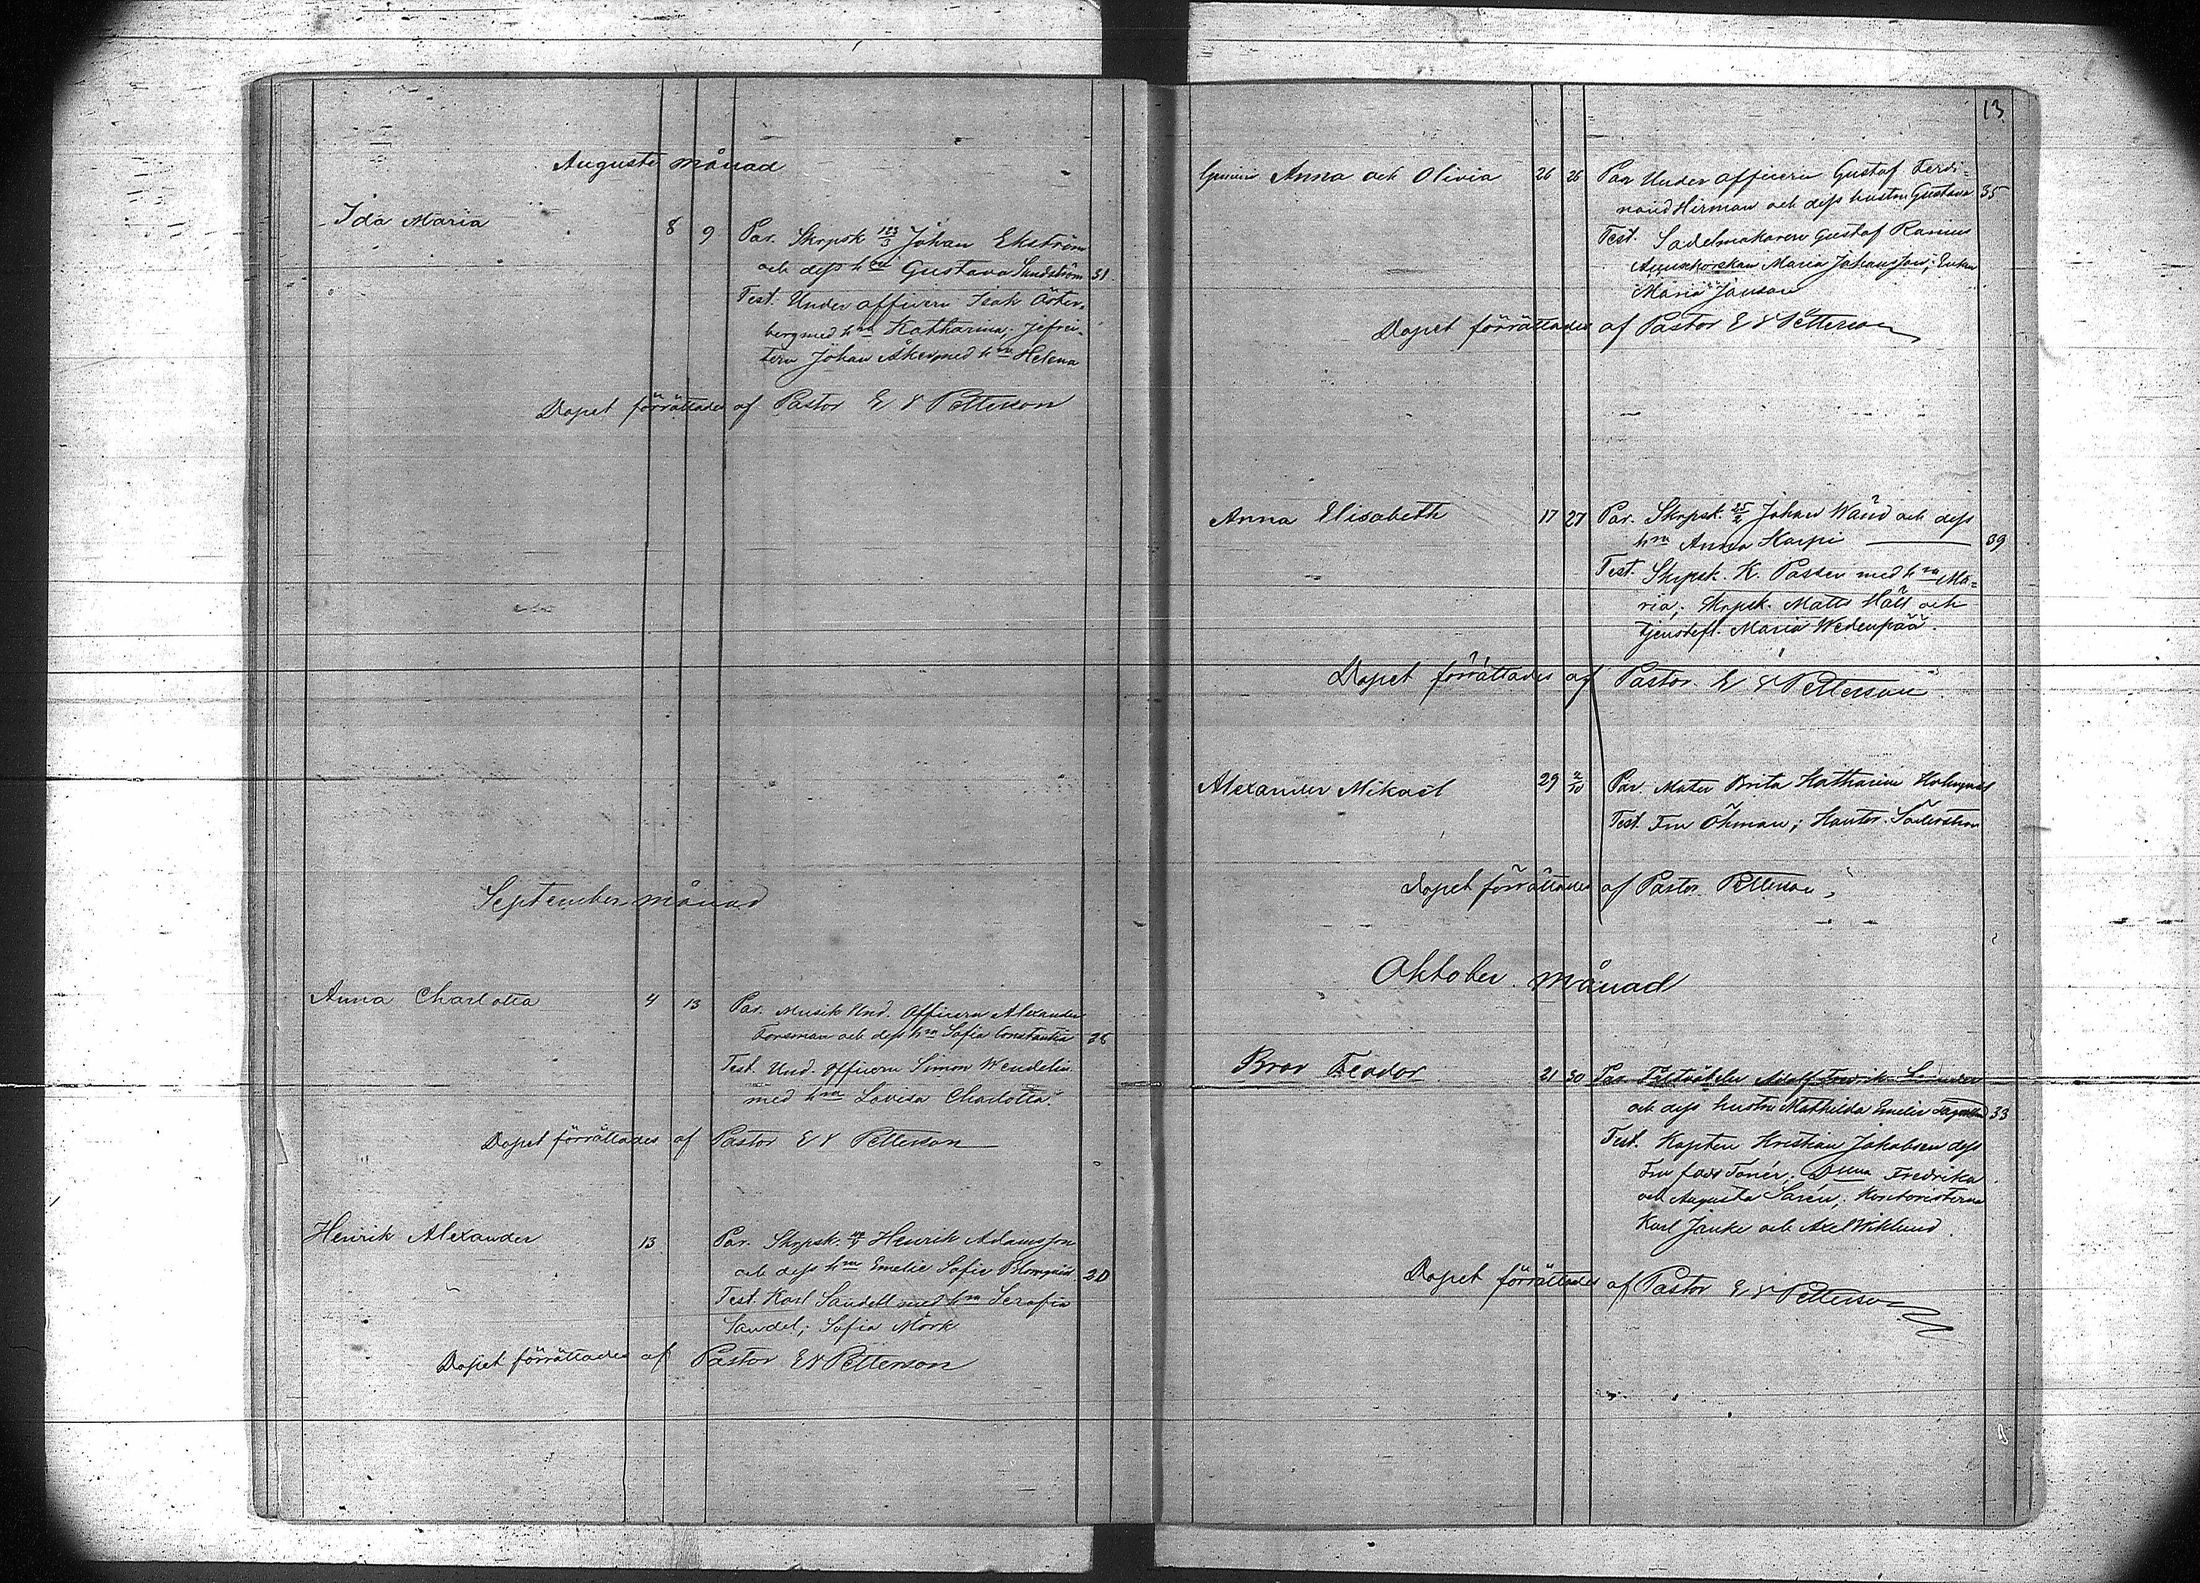 Augusti månad
Ida Maria 8 9 Par. Skrpsk 123/3 Johan Ekström
och dess hu Gustava Sundström 31
Test. Under officern Isak Öster-
berg med hru Katharina; jefrei-
tern Johan Åker med hru Helena
Dopet förrättades af Pastor E V Petterson
September månad
Anna Charlotta 4 13 Par. Musik Und. Officern Alexander
Forsman och dess hru Sofia Constantia 36
Test. Und. officern Simon Wendelin
med hru Lovisa Charlotta.
Dopet förrättades af Pastor E V Petterson
Henrik Alexander 13 Par. Skrpsk. Henrik Adamsson
och dess hru Emelie Sofie Blomqvist 30
Test. Karl Sandell med hru Serafia
Sandel; Sofia Mörk
Dopet förrättades af Pastor E V Petterson
13
Gemini Anna och Olivia 26 26 Par Under officern Gustaf Ferdi-
nand Hirman och dess hustru Gustava 35
Test. Sadelmakaren Gustaf Ramius
Maria Johansson; Enkan
Maria Janson
Dopet förrättades af Pastor E V Petterson
Anna Elisabeth 17 27 Par. Skrpsk. 25/2 Johan Wänd och dess
hru Anna Harpi 39
Test. Skrpsk. K. Passen med hru Ma-
ria; Skrpsk. Matts Hält och
tjenstefl. Maria Wedenpää.
Dopet förrättades af Pastor E V Petterson
Alexander Mikael 29 2/10 Par. Mater Brita Katharina Holmqvist
Test. Fru Öhman; Kantor. Söderström
Dopet förrättades af Pastor Petterson
Oktober månad
Bror Feodor 21 30 Par Adolf Fredrik
och dess hustru Mathilda Emelie 33
Test. Kapten Kristian Jakobsen dess
Fru född Tonér, Fredrika
och Augusta Sarén; Kontoristerna
Karl Janke och Axel Wiklund.
Dopet förrättades af Pastor E V Petterson